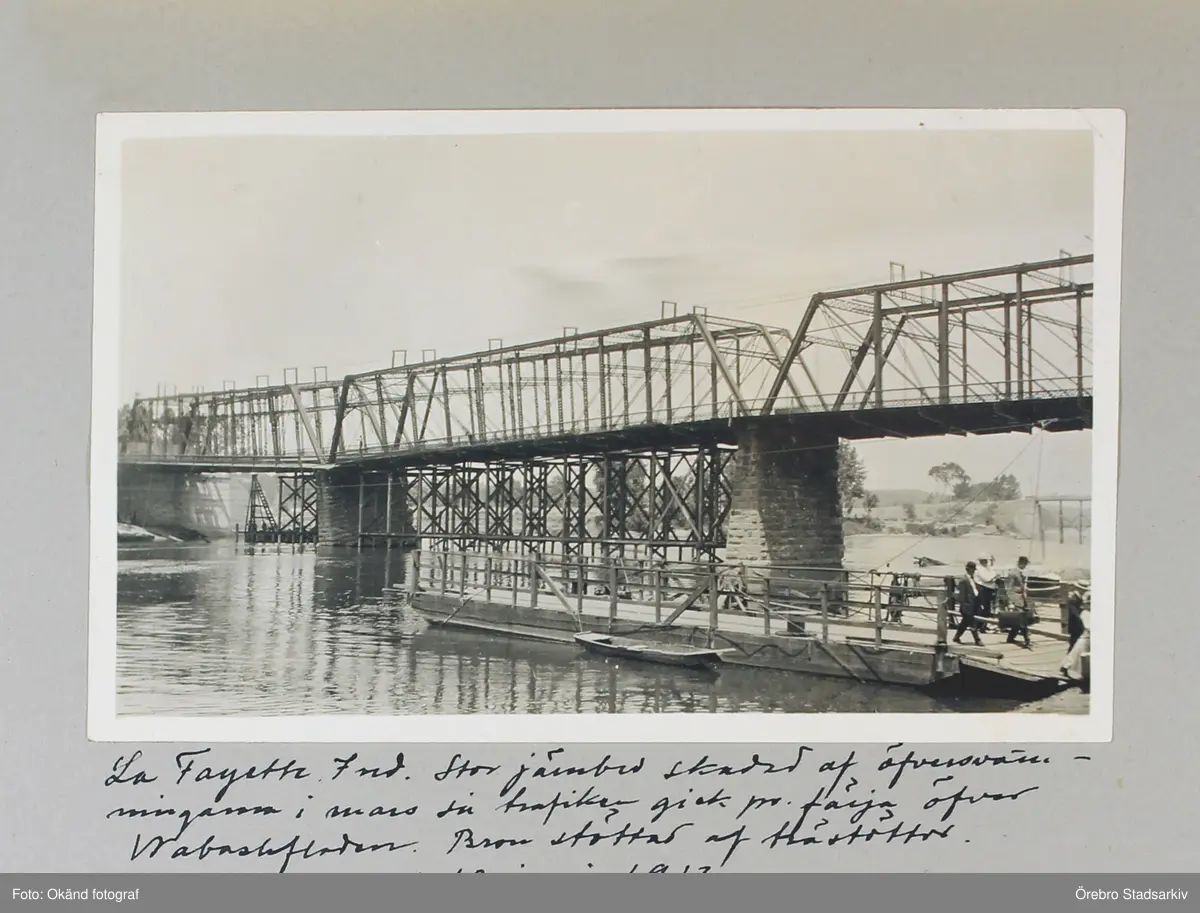 La Fayette, Ind. Stor järnbro skadad af öfversväm-
ningarna i mars så trafiken gick pr. färja öfver
Wabashfloden. Bron stöttad af trästöttor.
1913
Foto: Okänd fotograf
Örebro Stadsarkiv